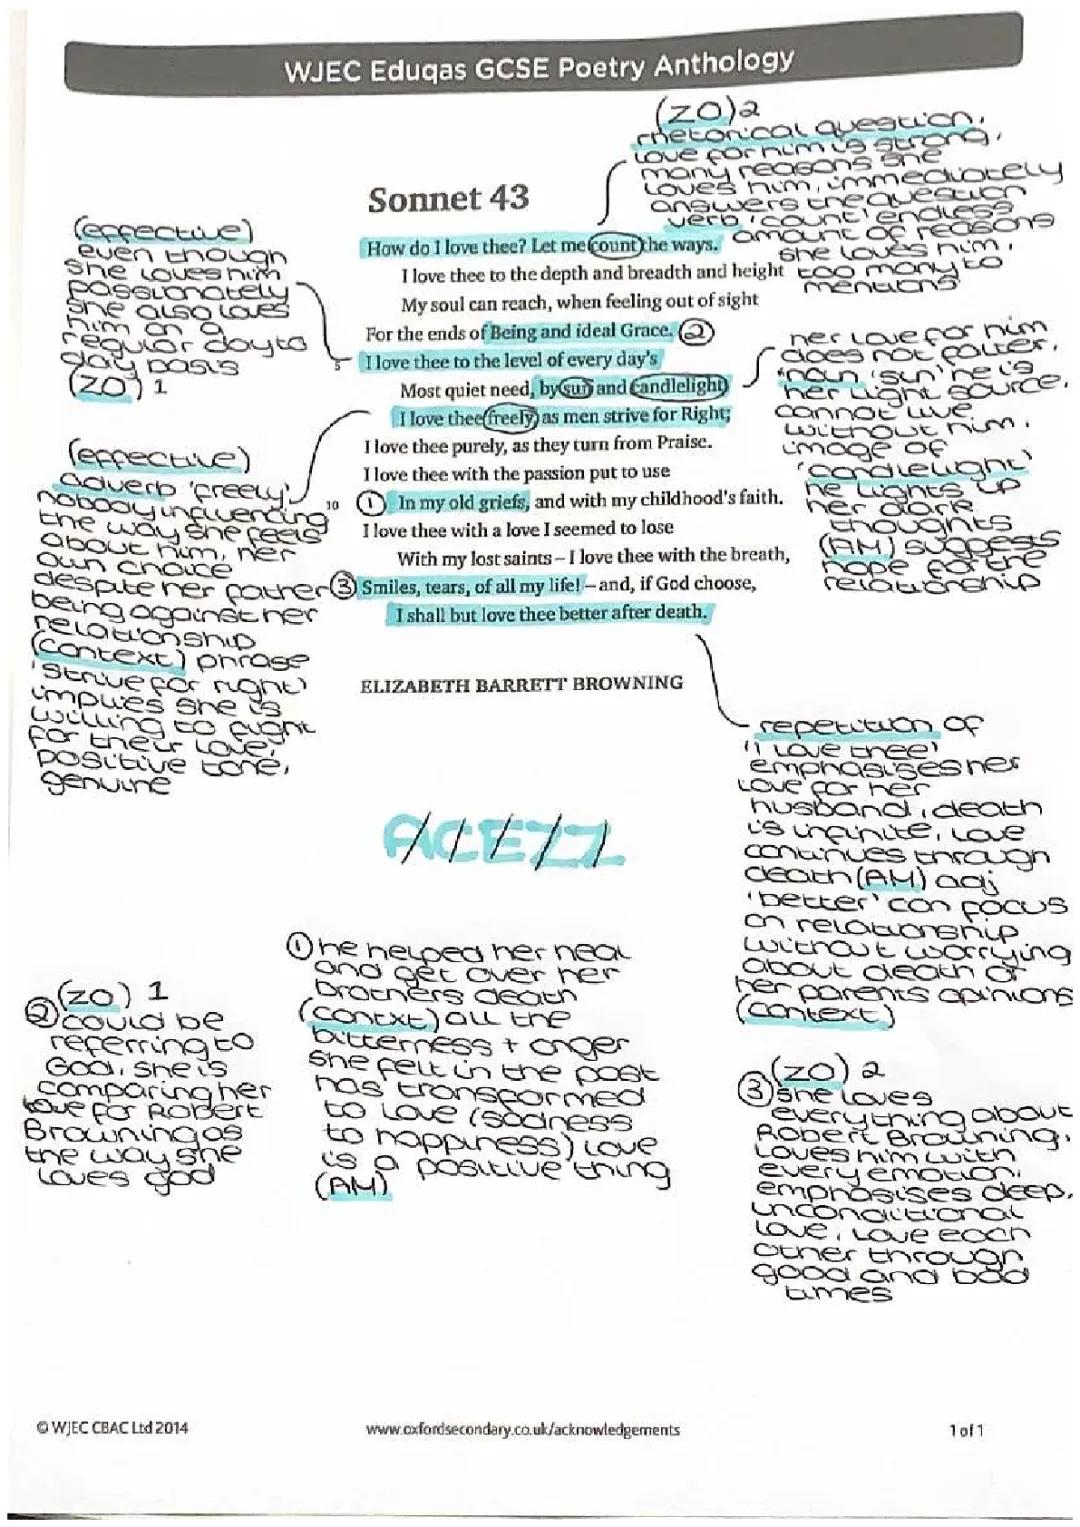 WJEC Eduqas GCSE Poetry Anthology
(ZO)2
rhetorical question,
love for him is strong,
many reasons she
loves him, immediately
answers the question
verb 'count' endless
amount of reasons
she loves him,
too many to
mentions
Sonnet 43
How do I love thee? Let me count the ways.
I love thee to the depth and breadth and height
My soul can reach, when feeling out of sight
For the ends of Being and ideal Grace. 2
5 I love thee to the level of every day's
Most quiet need, by sun and candlelight
I love thee freely, as men strive for Right;
I love thee purely, as they turn from Praise.
I love thee with the passion put to use
10 1 In my old griefs, and with my childhood's faith.
I love thee with a love I seemed to lose
With my lost saints – I love thee with the breath,
3 Smiles, tears, of all my life! – and, if God choose,
I shall but love thee better after death.
ELIZABETH BARRETT BROWNING
(effective)
even though
she loves him
passionately
she also loves
him on a
regular day to
day basis
(ZO) 1
(effective)
adverb 'freely'
nobody influencing
the way she feels
about him, her
own choice
despite her father
being against her
relationship
(context) phrase
'strive for right'
implies she is
willing to fight
for their love,
positive tone,
genuine
her love for him
does not falter,
noun 'sun' he is
her light source,
cannot live
without him.
image of
'candlelight'
he lights up
her dark
thoughts
(AM) suggests
hope for the
relationship
repetition of
'I love thee'
emphasises her
love for her
husband, death
is infinite, love
continues through
death (AM) adj
'better' can focus
on relationship
without worrying
about death or
her parents opinions
(context)
ACEZZ
(ZO) 1
2 could be
referring to
God, she is
comparing her
love for Robert
Browning as
the way she
loves god
1 he helped her heal
and get over her
brothers death
(contxt) all the
bitterness + anger
she felt in the past
has transformed
to love (sadness
to happiness) love
is a positive thing
(AM)
(ZO) 2
3 she loves
everything about
Robert Browning,
loves him with
every emotion,
emphasises deep,
unconditional
love, love each
other through
good and bad
times
© WJEC CBAC Ltd 2014
www.oxfordsecondary.co.uk/acknowledgements
1 of 1